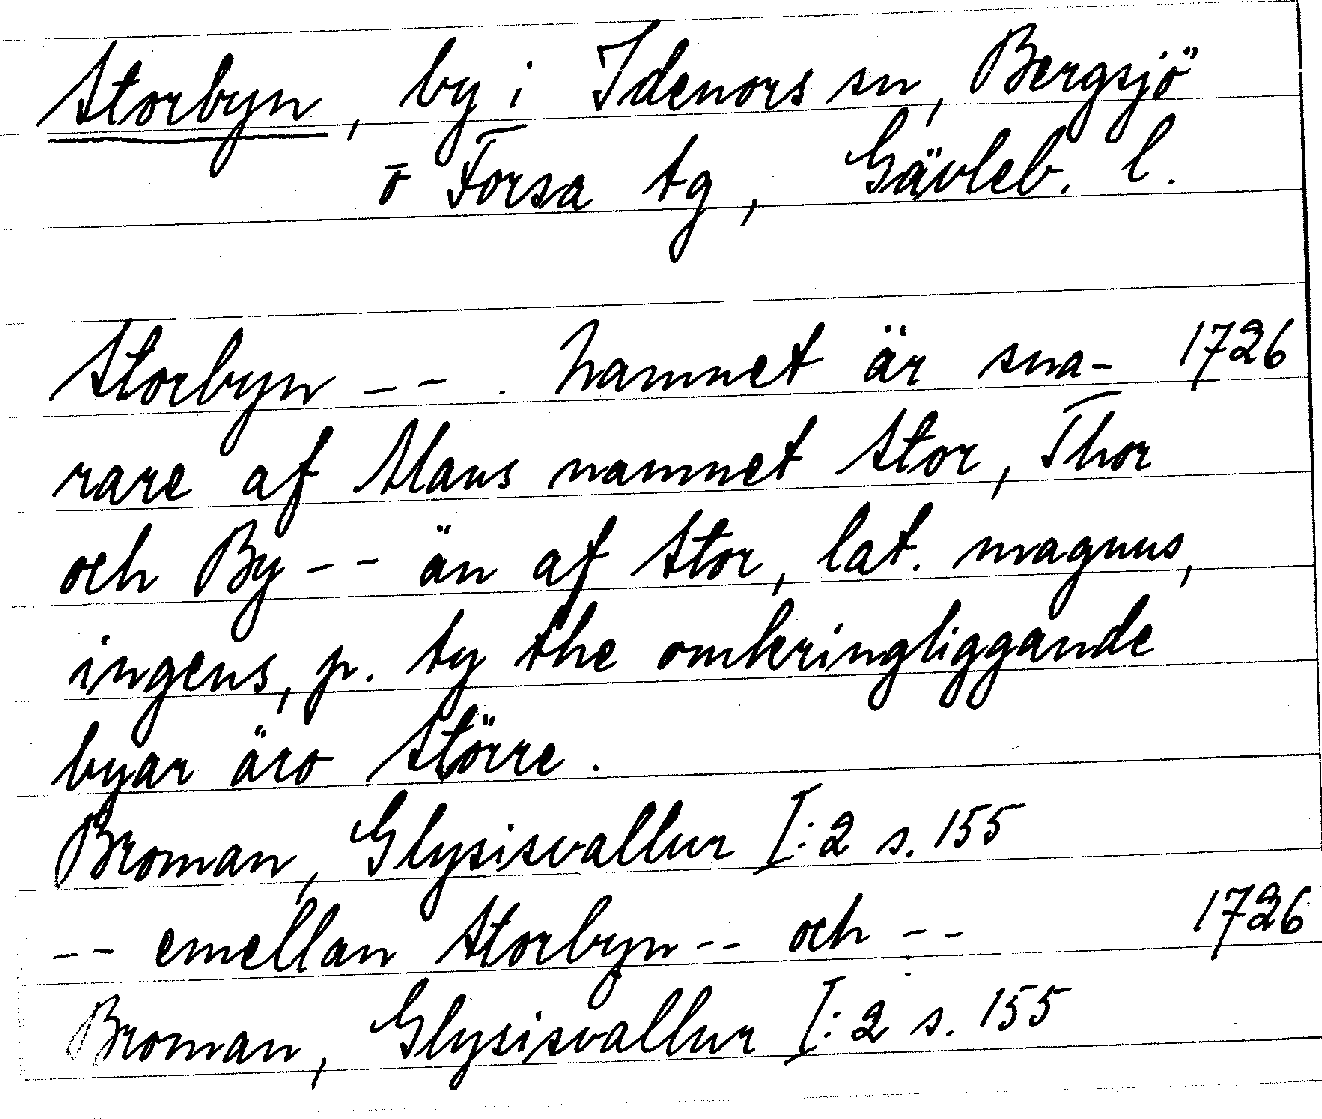 Storbyn, by i Idenors sn, Bergsjö
o Forsa tg, Gävleb. l.
Storbyn -- . Namnet är sna- 1726
rare af Mans namnet Stor, Thor
och By -- än af Stor, lat. magnus,
ingens, p. ty the omkringliggande
byar äro Större.
Broman, Glysisvallur I:2 s. 155
-- emellan Storbyn -- och -- 1726
Broman, Glysisvallur I:2 s. 155